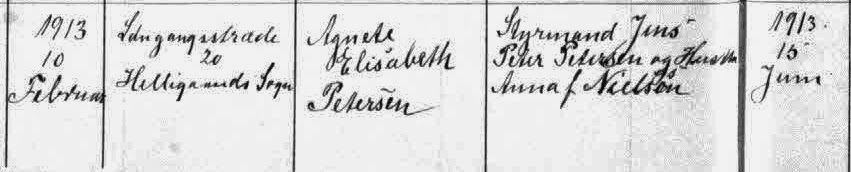 1913
10
Februar
Løngangsstræde
20
Helligaands Sogn
Agnete
Elisabeth
Petersen
Styrmand Jens
Peter Petersen og Hustru
Anna f. Nielsen
1913.
15
Juni